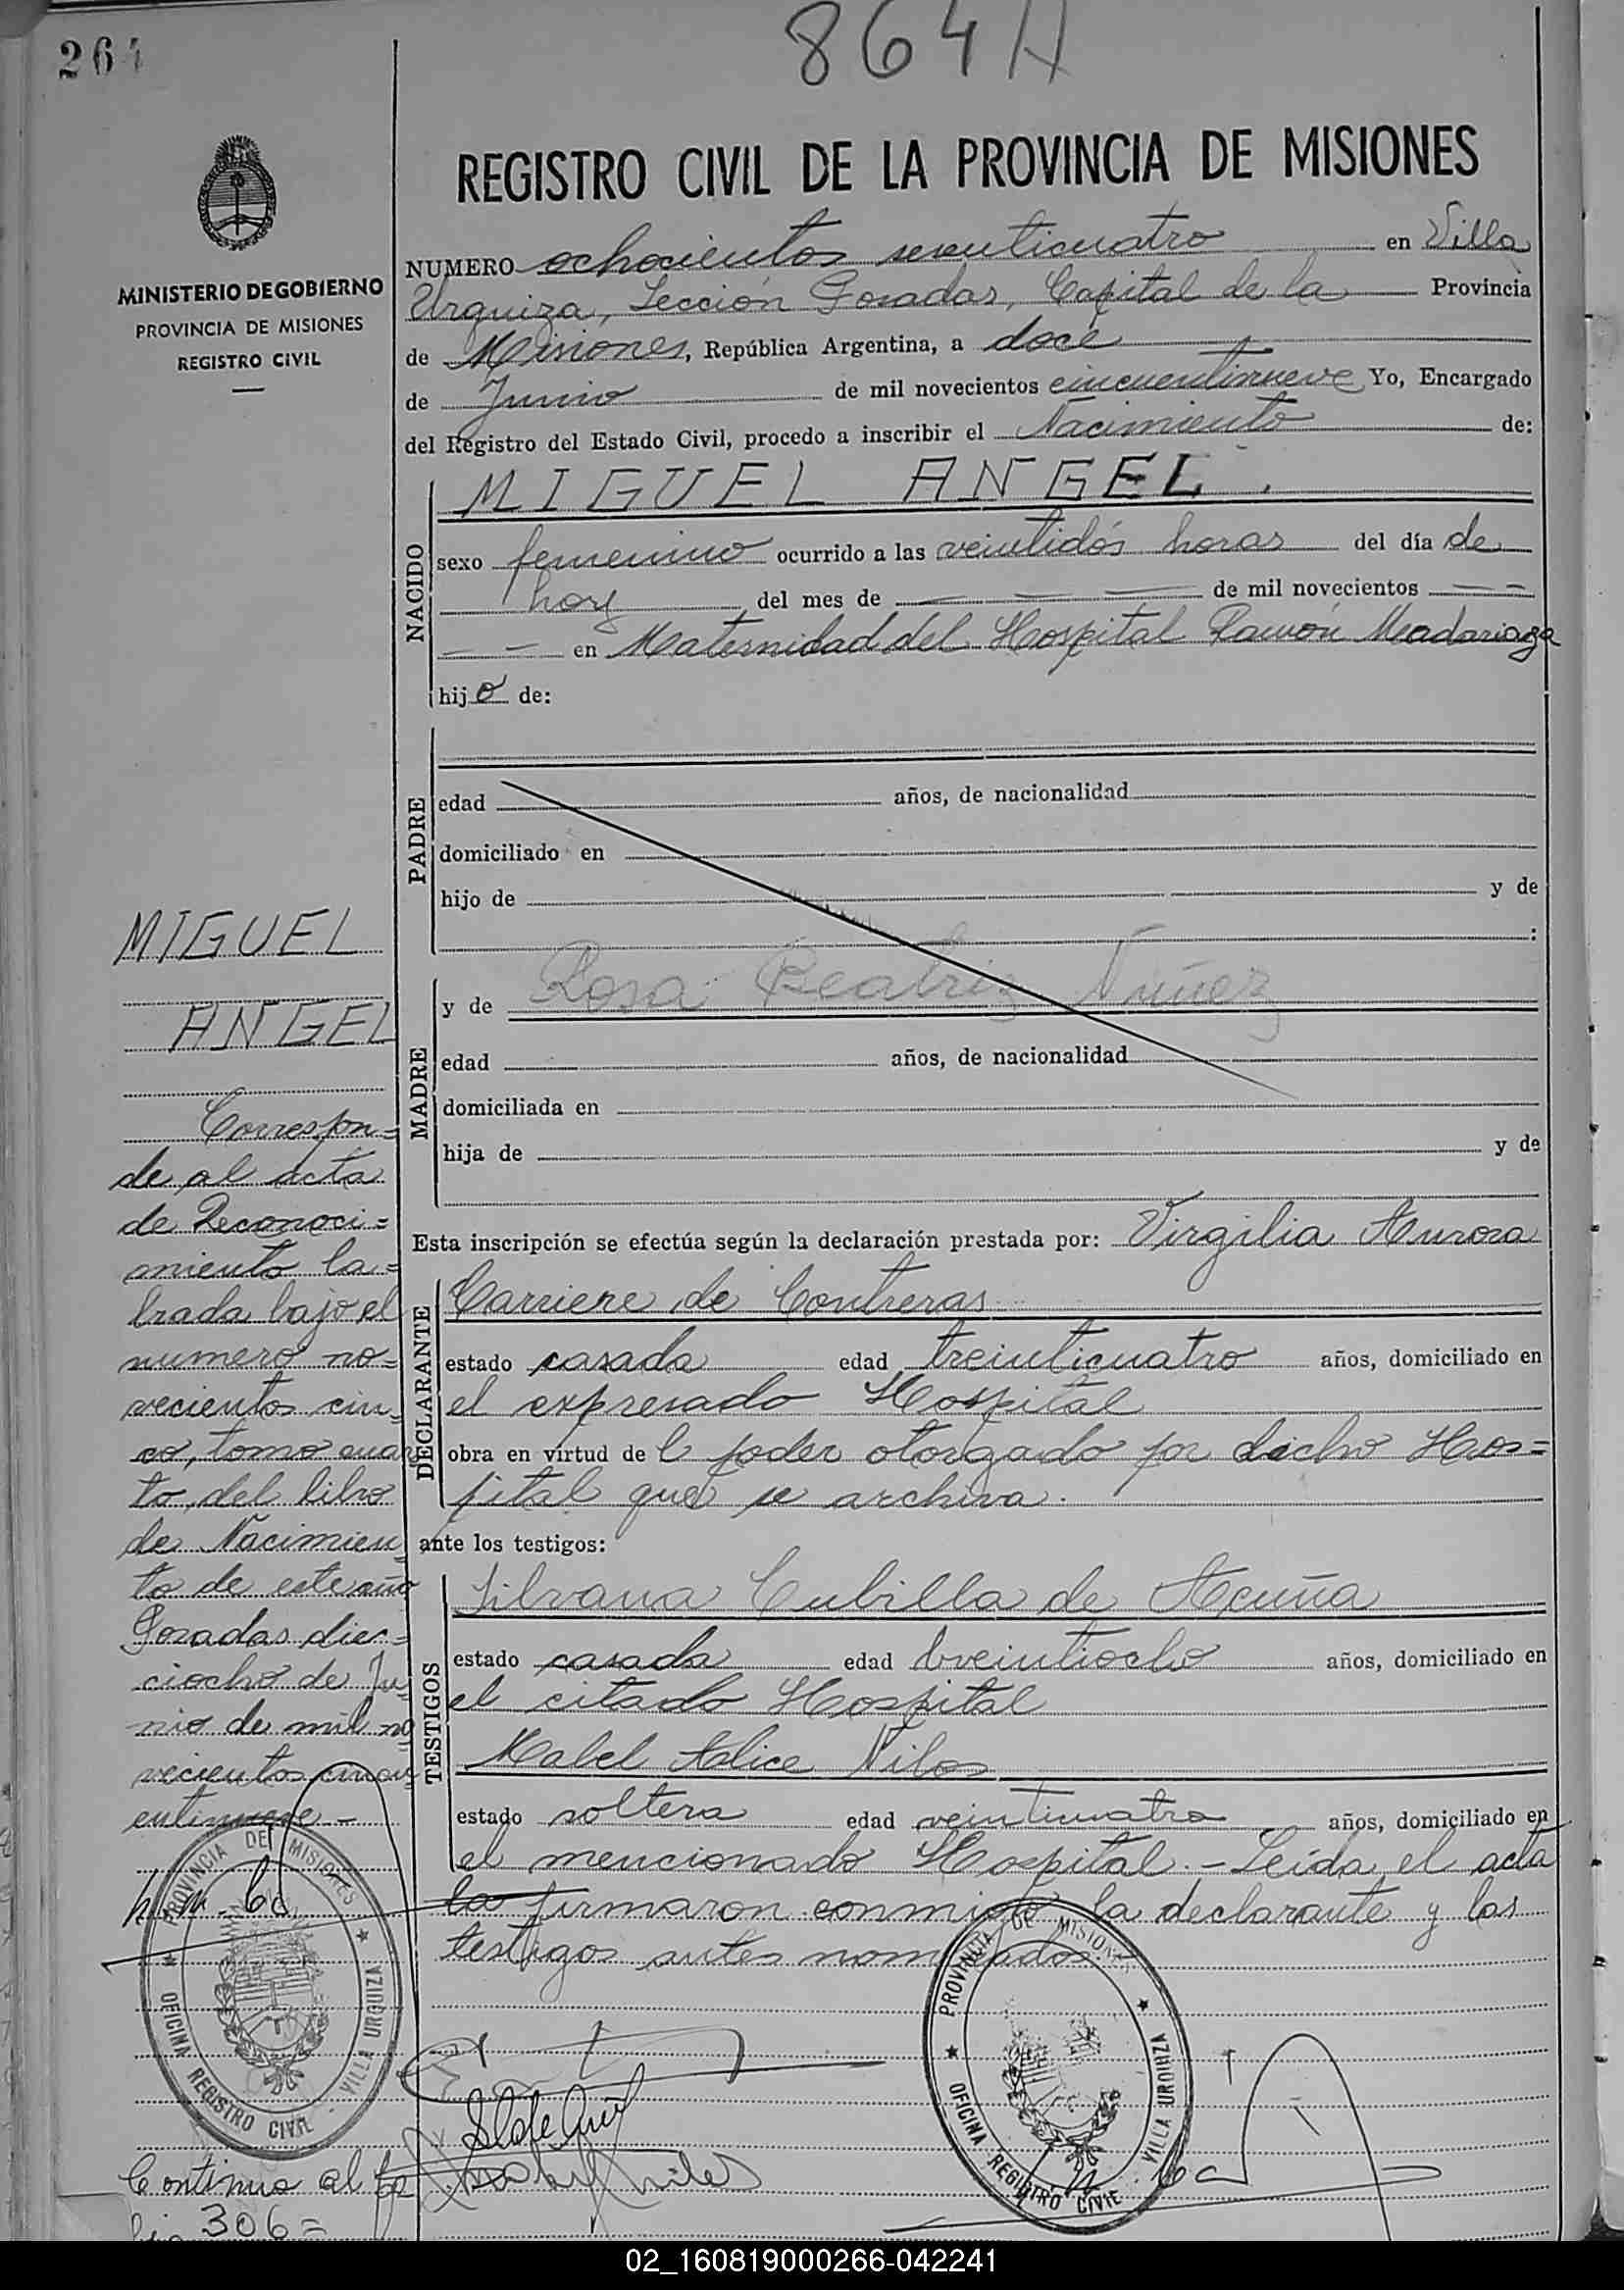 264
864 A
MINISTERIO DE GOBIERNO
PROVINCIA DE MISIONES
REGISTRO CIVIL
REGISTRO CIVIL DE LA PROVINCIA DE MISIONES
NUMERO ochocientos sesenticuatro en Villa
Urquiza, Sección Posadas, Capital de la Provincia
de Misiones, República Argentina, a doce
de Junio de mil novecientos cincuentinueve Yo, Encargado
del Registro del Estado Civil, procedo a inscribir el Nacimiento de:
NACIDO
MIGUEL ANGEL.
sexo femenino ocurrido a las veintidós horas del día de
hoy del mes de — — — de mil novecientos — —
— — en Maternidad del Hospital Ramón Madariaga
hijo de:
PADRE
edad años, de nacionalidad
domiciliado en
hijo de y de
:
MADRE
y de Rosa Beatriz Núñez
edad años, de nacionalidad
domiciliada en
hija de y de
Esta inscripción se efectúa según la declaración prestada por: Virgilia Aurora
DECLARANTE
Carriere de Contreras
estado casada edad treinticuatro años, domiciliado en
el expresado Hospital
obra en virtud de l poder otorgado por dicho Hos=
pital que se archiva.
ante los testigos:
TESTIGOS
Silvana Cubilla de Acuña
estado casada edad veintiocho años, domiciliado en
el citado Hospital
Mabel Alice Nilos
estado soltera edad veinticuatro años, domiciliado en
el mencionado Hospital.- Leída el acta
la firmaron conmigo la declarante y los
testigos antes nombrados
MIGUEL
ANGEL
Correspon=
de al acta
de Reconoci=
miento la=
brada bajo el
numero no=
vecientos cin=
co, tomo cuar
to, del libro
de Nacimien
to de este año
Posadas diec=
iocho de Ju=
nio de mil no
vecientos cincu
entinueve -
PROVINCIA DE MISIONES
OFICINA REGISTRO CIVIL - VILLA URQUIZA
PROVINCIA DE MISIONES
OFICINA REGISTRO CIVIL - VILLA URQUIZA
Continua al fo
lio 306=
02_160819000266-042241